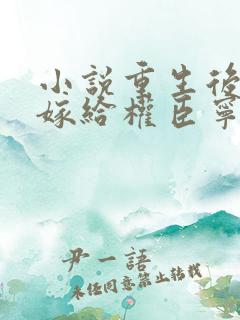 小說重生後
嫁給權臣寧
尹一語
未經同意禁止轉載